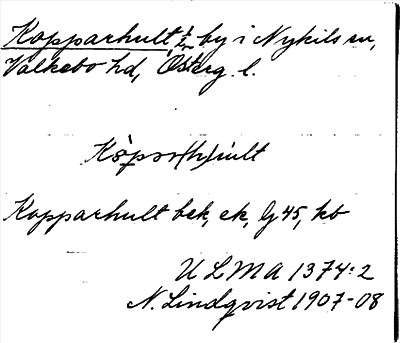 Kopparhult, 1/2 by i Nykils sn,
Valkebo hd, Österg. l.
Kopparhult bek, ek, Gj 45, kb
ULMA 1374:2
N. Lindqvist 1907-08